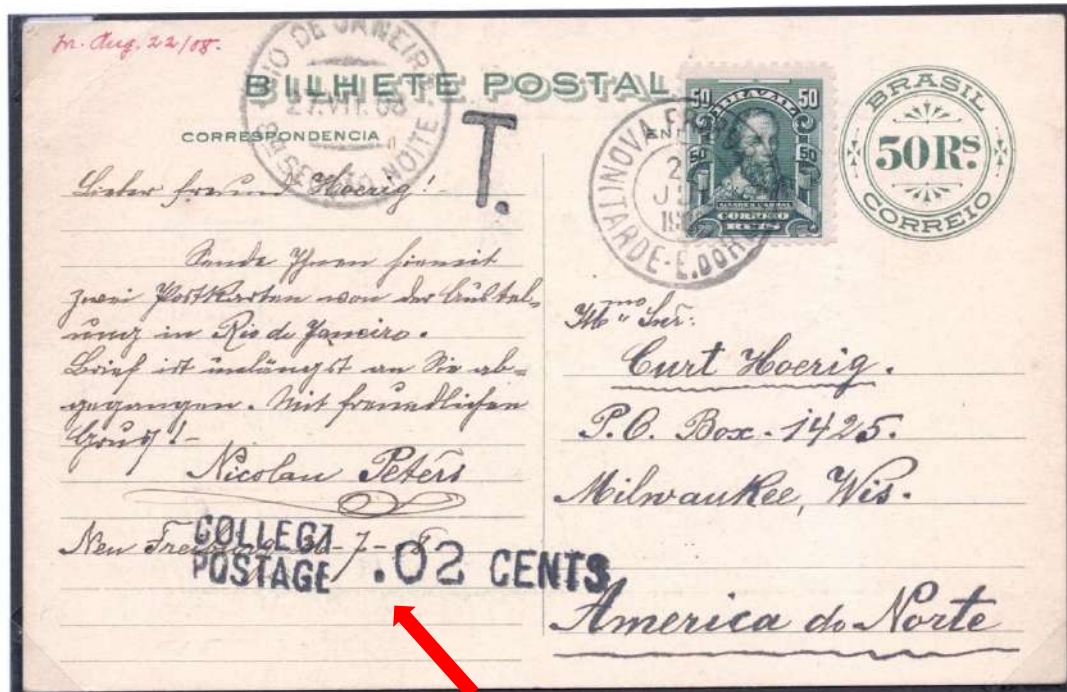 In. Aug. 22/08.
RIO DE JANEIRO
27.VII.08
NOITE
BILHETE POSTAL
CORRESPONDENCIA
T.
NOVA FRI
ARDE-E.DO
50 BRAZIL 50
50 50
CORREIO
BRASIL
50 RS
CORREIO
Lieber Freund Hoerig!
Sende Ihnen hiemit
zwei Postkarten von der Austel-
lung in Rio de Janeiro.
Brief ist unlängst an Sie ab-
gegangen. Mit freundlichen
Gruß!-
Nicolau Peters
Neu Freiburg
-7-
COLLECT
POSTAGE .02 CENTS
Illmo Snr:
Curt Hoerig.
P.O. Box-1425.
Milwaukee, Wis.
America do Norte